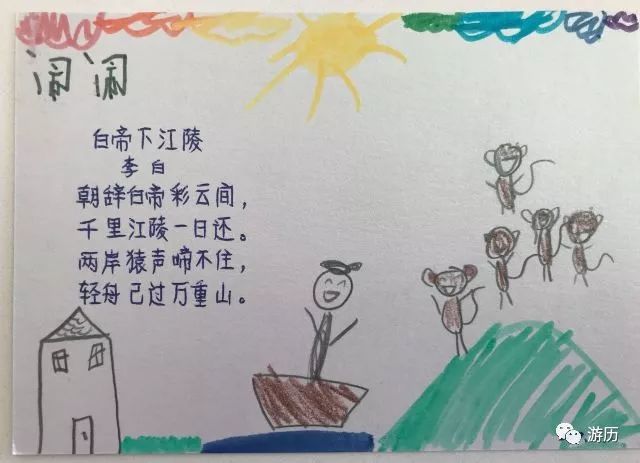 闹闹
白帝下江陵
李白
朝辞白帝彩云间，
千里江陵一日还。
两岸猿声啼不住，
轻舟已过万重山。
游历